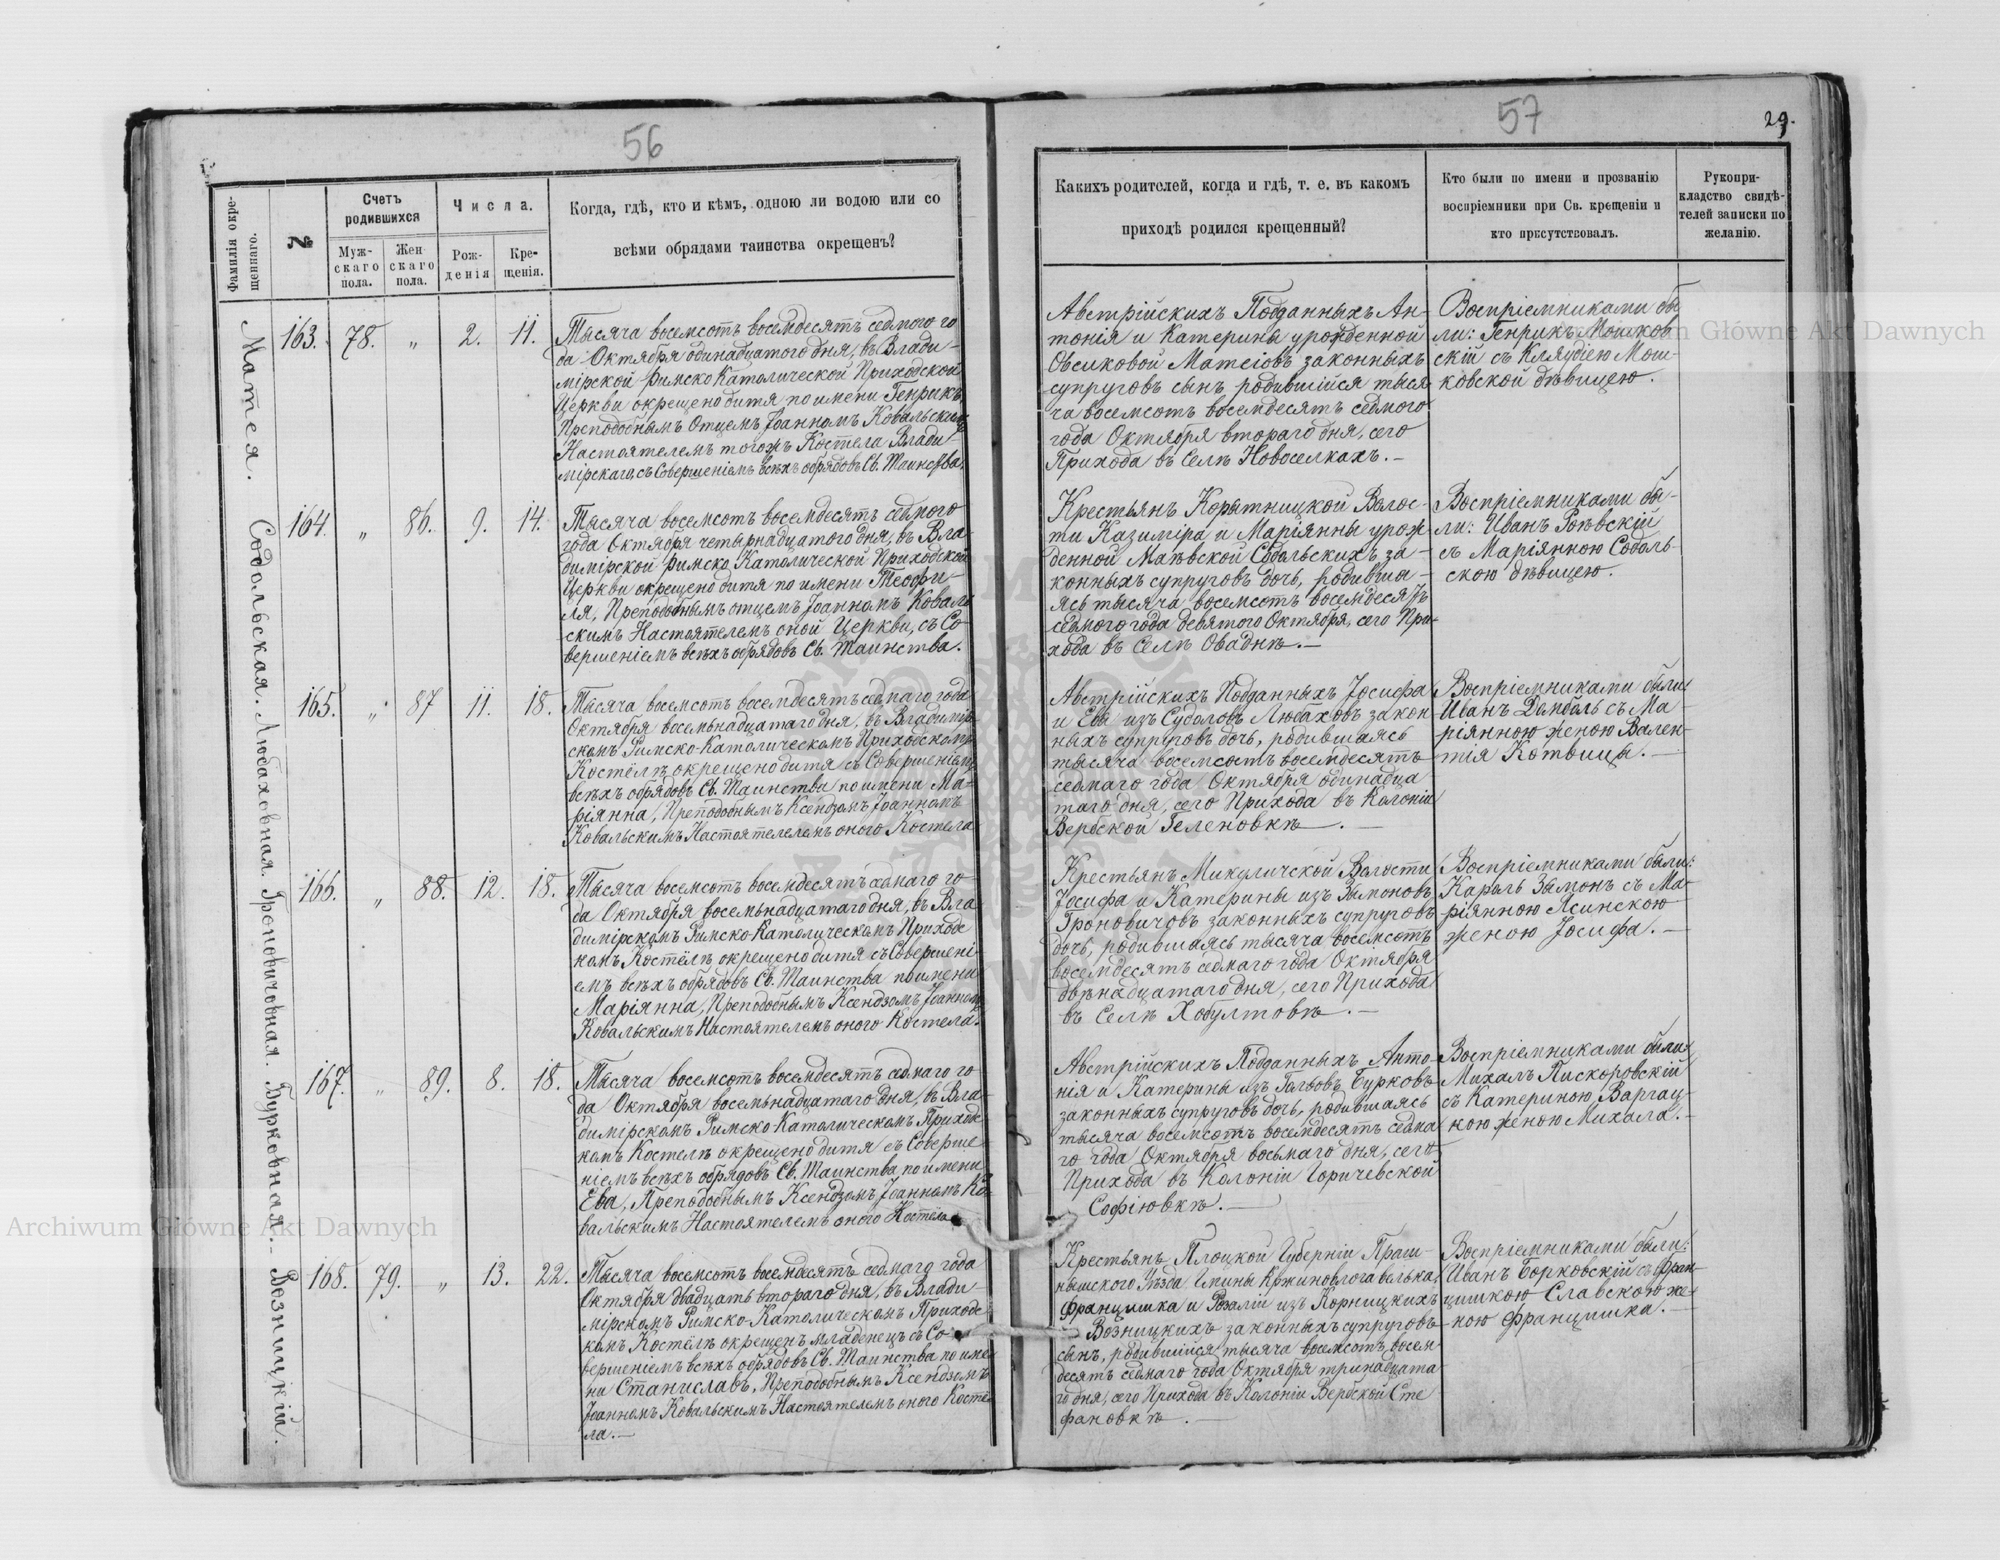 56
Фамилія окрещеннаго.
№
Счетъ родившихся
Мужскаго пола.
Женскаго пола.
Числа.
Рожденія
Крещенія.
Когда, гдѣ, кто и кѣмъ, одною ли водою или со
всѣми обрядами таинства окрещенъ?
Матея.
163. 78. „ 2. 11.
Тысяча восемсотъ восемдесятъ седмого го
да Октября одинадцатого дня, въ Влади-
мірской Римско Католической Приходской
Церкви окрещено дитя по имени Генрикъ
Преподобнымъ Отцемъ Іоанномъ Ковальскимъ
Настоятелемъ тогожъ Костела Влади-
мірскаго, съ Совершеніемъ всѣхъ обрядовъ Св. Таинства.
Содольская.
164. „ 86. 9. 14.
Тысяча восемсотъ восемдесятъ седмого
года Октября четырнадцатого дня, въ Вла-
димірской Римско Католической Приходской
Церкви окрещено дитя по имени Теофи-
ія, Преподобнымъ отцемъ Іоанномъ Коваль
скимъ Настоятелемъ оной Церкви, съ Со
вершеніемъ всѣхъ обрядовъ Св. Таинства.
Любаховная.
165. „ 87 11. 18.
Тысяча восемсотъ восемдесятъ седмаго года
Октября восемьнадцатаго дня, въ Владимір
скомъ Римско-Католическомъ Приходскомъ
Костёлѣ окрещено дитя съ Совершеніемъ
всѣхъ обрядовъ Св. Таинства по имени Ма-
ріянна, Преподобнымъ Ксендзомъ Іоанномъ
Ковальскимъ Настоятелемъ оного Костела
Гроновичовная.
166. „ 88. 12. 18.
Тысяча восемсотъ восемдесятъ седмаго го-
да Октября восемьнадцатаго дня, въ Вла
димірскомъ Римско-Католическомъ Приходс
комъ Костёлѣ окрещено дитя съ Совершені-
емъ всѣхъ обрядовъ Св. Таинства по имени
Маріянна, Преподобнымъ Ксендзомъ Іоанномъ
Ковальскимъ Настоятелемъ оного Костела.
Бурковная.
167. „ 89. 8. 18.
Тысяча восемсотъ восемдесятъ седмаго го-
да Октября восемьнадцатаго дня, въ Вла-
димірскомъ Римско-Католическомъ Приходс
комъ Костелѣ окрещено дитя съ Соверше
ніемъ всѣхъ обрядовъ Св. Таинства по имени
Ева, Преподобнымъ Ксендзомъ Іоанномъ Ко-
вальскимъ Настоятелемъ оного Костёла
Возницкій.
168. 79. „ 13. 22.
Тысяча восемсотъ восемдесятъ седмаго года
Октября двадцать втораго дня, въ Влади-
мірскомъ Римско-Католическомъ Приходс
комъ Костёлѣ окрещенъ младенецъ съ Со
вершеніемъ всѣхъ обрядовъ Св. Таинства по име
ни Станиславъ, Преподобнымъ Ксендзомъ
Іоанномъ Ковальскимъ Настоятелемъ оного Косте
ла.—
57
29.
Какихъ родителей, когда и гдѣ, т. е. въ какомъ
приходѣ родился крещенный?
Кто были по имени и прозванію
воспріемники при Св. крещеніи и
кто присутствовалъ.
Рукопри-
кладство свидѣ-
телей записки по
желанію.
Австрійскихъ Подданныхъ Ан-
тонія и Катерины урожденной
Овсиковой Матеіовъ законныхъ
супруговъ сынъ, родившійся тыся
ча восемсотъ восемдесятъ седмого
года Октября втораго дня, сего
Прихода въ Селѣ Новоселкахъ.—
Воспріемниками бы
ли: Генрикъ Мошков
скій съ Кляудіею Мош-
ковской дѣвицею.
Крестьянъ Корытницкой Волос-
ти Казиміра и Маріянны урож-
денной Маѣвской Содольскихъ за-
конныхъ супруговъ дочь, родивша-
ясь тысяча восемсотъ восемдесятъ
седмого года девятого Октября, сего При-
хода въ Селѣ Оваднѣ.—
Воспріемниками бы-
ли: Иванъ Роевскій
съ Маріянною Содоль-
скою дѣвицею.
Австрійскихъ Подданныхъ Іосифа
и Евы изъ Судоловъ Любаховъ закон
ныхъ супруговъ дочь, родившаясь
тысяча восемсотъ восемдесятъ
седмаго года Октября одинадца
таго дня, сего Прихода въ Колоніи
Вербской Геленовкѣ.—
Воспріемниками были:
Иванъ Домбаль съ Ма-
ріянною женою Вален-
тія Котвицы.—
Крестьянъ Микуличской Волости
Іосифа и Катерины изъ Зымоновъ
Гроновичовъ законныхъ супруговъ
дочь, родившаясь тысяча восемсотъ
восемдесятъ седмаго года Октября
двѣнадцатаго дня, сего Прихода
въ Селѣ Хобултовѣ.—
Воспріемниками были:
Кароль Зымонъ съ Ма-
ріянною Ясинскою
женою Іосифа.—
Австрійскихъ Подданныхъ Анто-
нія и Катерины изъ Галвовъ Бурковъ
законныхъ супруговъ дочь, родившаясь
тысяча восемсотъ восемдесятъ седма
го года Октября восьмаго дня, сего
Прихода въ Колоніи Горичевской
Софіювкѣ.—
Воспріемниками были:
Михалъ Пискоровскій
съ Катериною Варгац-
кою женою Михала.—
Крестьянъ Плоцкой Губерніи Прас-
нышского Уѣзда Гмины Кржиновлога велька,
Францишка и Розаліи изъ Корницкихъ
Возницкихъ законныхъ супруговъ
сынъ, родившійся тысяча восемсотъ восем-
десятъ седмаго года Октября тринадцата
го дня, сего Прихода въ Колоніи Вербской Сте
фановкѣ.—
Воспріемниками были:
Иванъ Борковскій съ Фран-
цишкою Славскою же-
ною Францишка.—
Archiwum Główne Akt Dawnych
Archiwum Główne Akt Dawnych